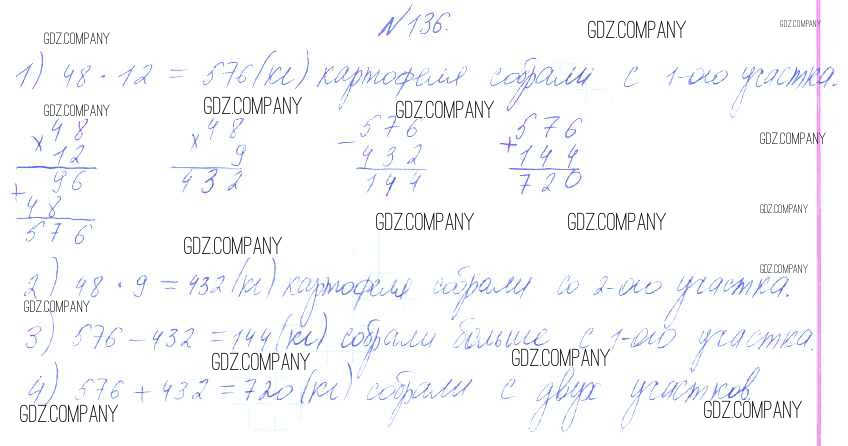 №136.
GDZ.COMPANY GDZ.COMPANY GDZ.COMPANY
1) 48 · 12 = 576 (кг) картофеля собрали с 1-ого участка.
GDZ.COMPANY GDZ.COMPANY GDZ.COMPANY GDZ.COMPANY
× 48 × 48 − 576 + 576
12 9 432 144
96 432 144 720
+ 48
576
GDZ.COMPANY GDZ.COMPANY GDZ.COMPANY
GDZ.COMPANY GDZ.COMPANY
2) 48 · 9 = 432 (кг) картофеля собрали со 2-ого участка.
GDZ.COMPANY
3) 576 − 432 = 144 (кг) собрали больше с 1-ого участка.
GDZ.COMPANY GDZ.COMPANY
4) 576 + 432 = 720 (кг) собрали с двух участков.
GDZ.COMPANY GDZ.COMPANY